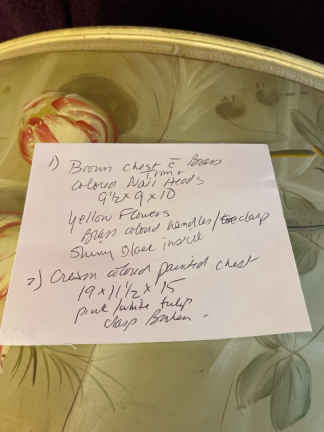 1) Brown chest c̄ Brass
colored Nail Heads
9½ x 9 x 10
Yellow Flowers
Brass colored handles / clasp
Shiny Glaze inside
2) Cream colored painted chest
19 x 11½ x 15
pink / white tulip
clasp Broken.